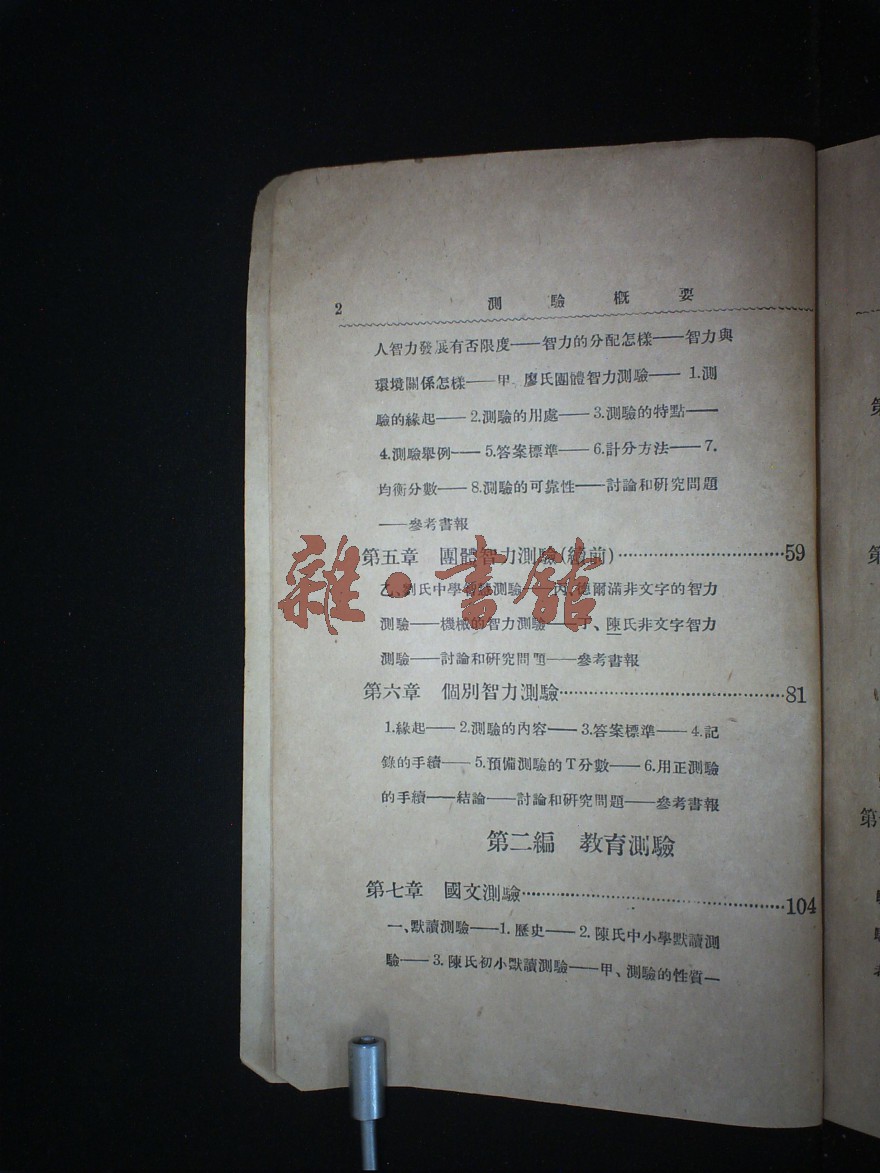 2 測驗概要
人智力發展有否限度——智力的分配怎樣——智力與
環境關係怎樣——甲、廖氏團體智力測驗——1.測
驗的緣起——2.測驗的用處——3.測驗的特點——
4.測驗舉例——5.答案標準——6.計分方法——7.
均衡分數——8.測驗的可靠性——討論和研究問題
——參考書報
第五章 團體智力測驗(續前)……59
乙、劉氏中學智慧測驗——丙、德爾滿非文字的智力
測驗——機械的智力測驗——丁、陳氏非文字智力
測驗——討論和研究問題——參考書報
第六章 個別智力測驗……81
1.緣起——2.測驗的內容——3.答案標準——4.記
錄的手續——5.預備測驗的T分數——6.用正測驗
的手續——結論——討論和研究問題——參考書報
第二編 教育測驗
第七章 國文測驗……104
一、默讀測驗——1.歷史——2.陳氏中小學默讀測
驗——3.陳氏初小默讀測驗——甲、測驗的性質—
雜·書館